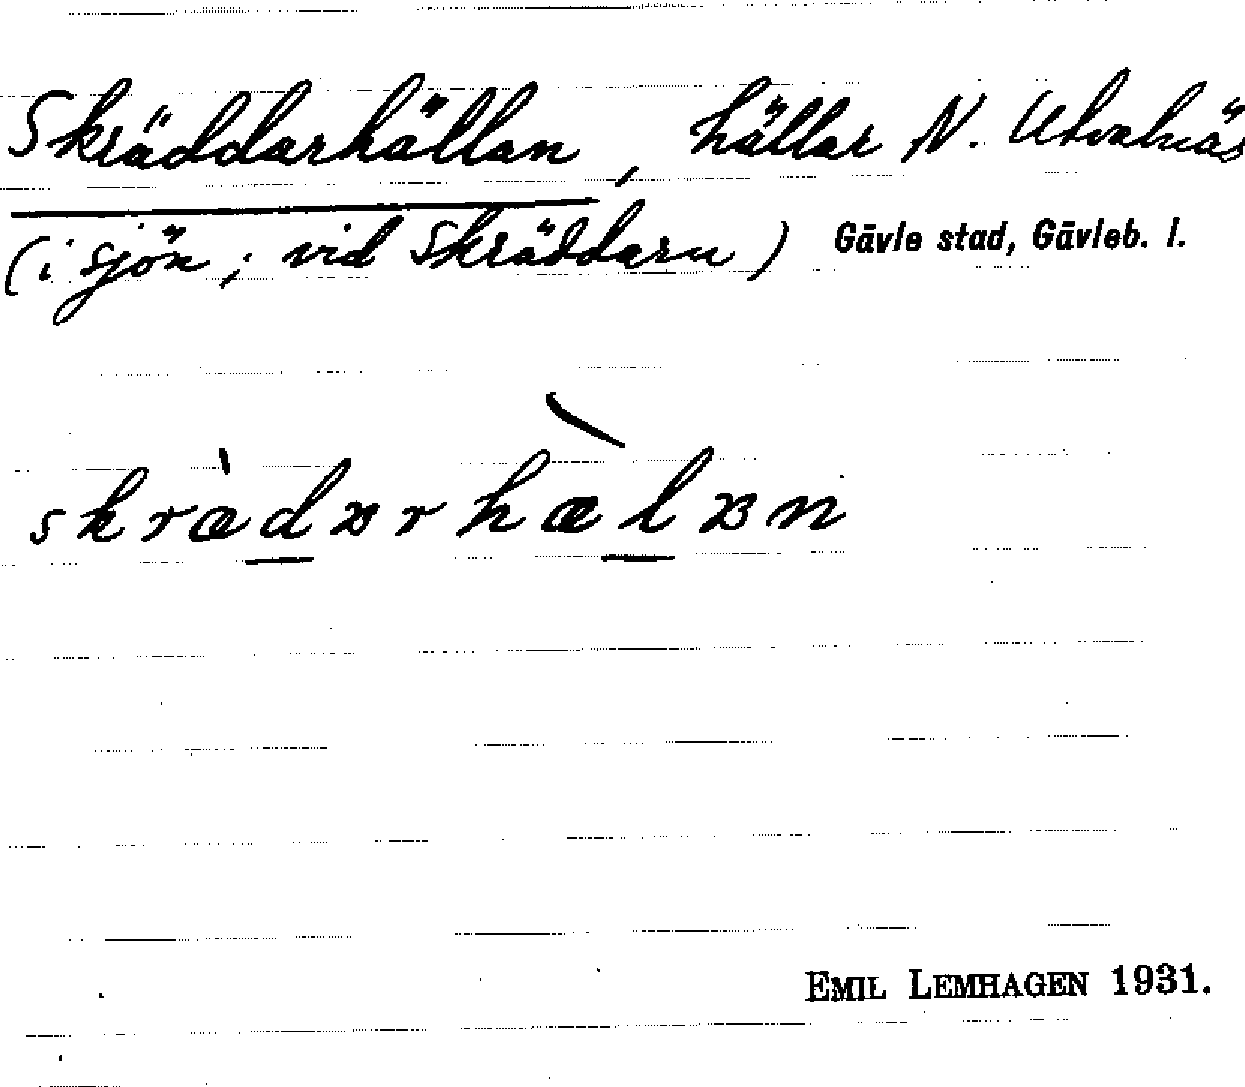 Skräddarhällan, hällar N. Utvalnäs
(i sjön; vid Skräddarn) Gävle stad, Gävleb. l.
skræ̀dɐrhæ̀lɐn
EMIL LEMHAGEN 1931.